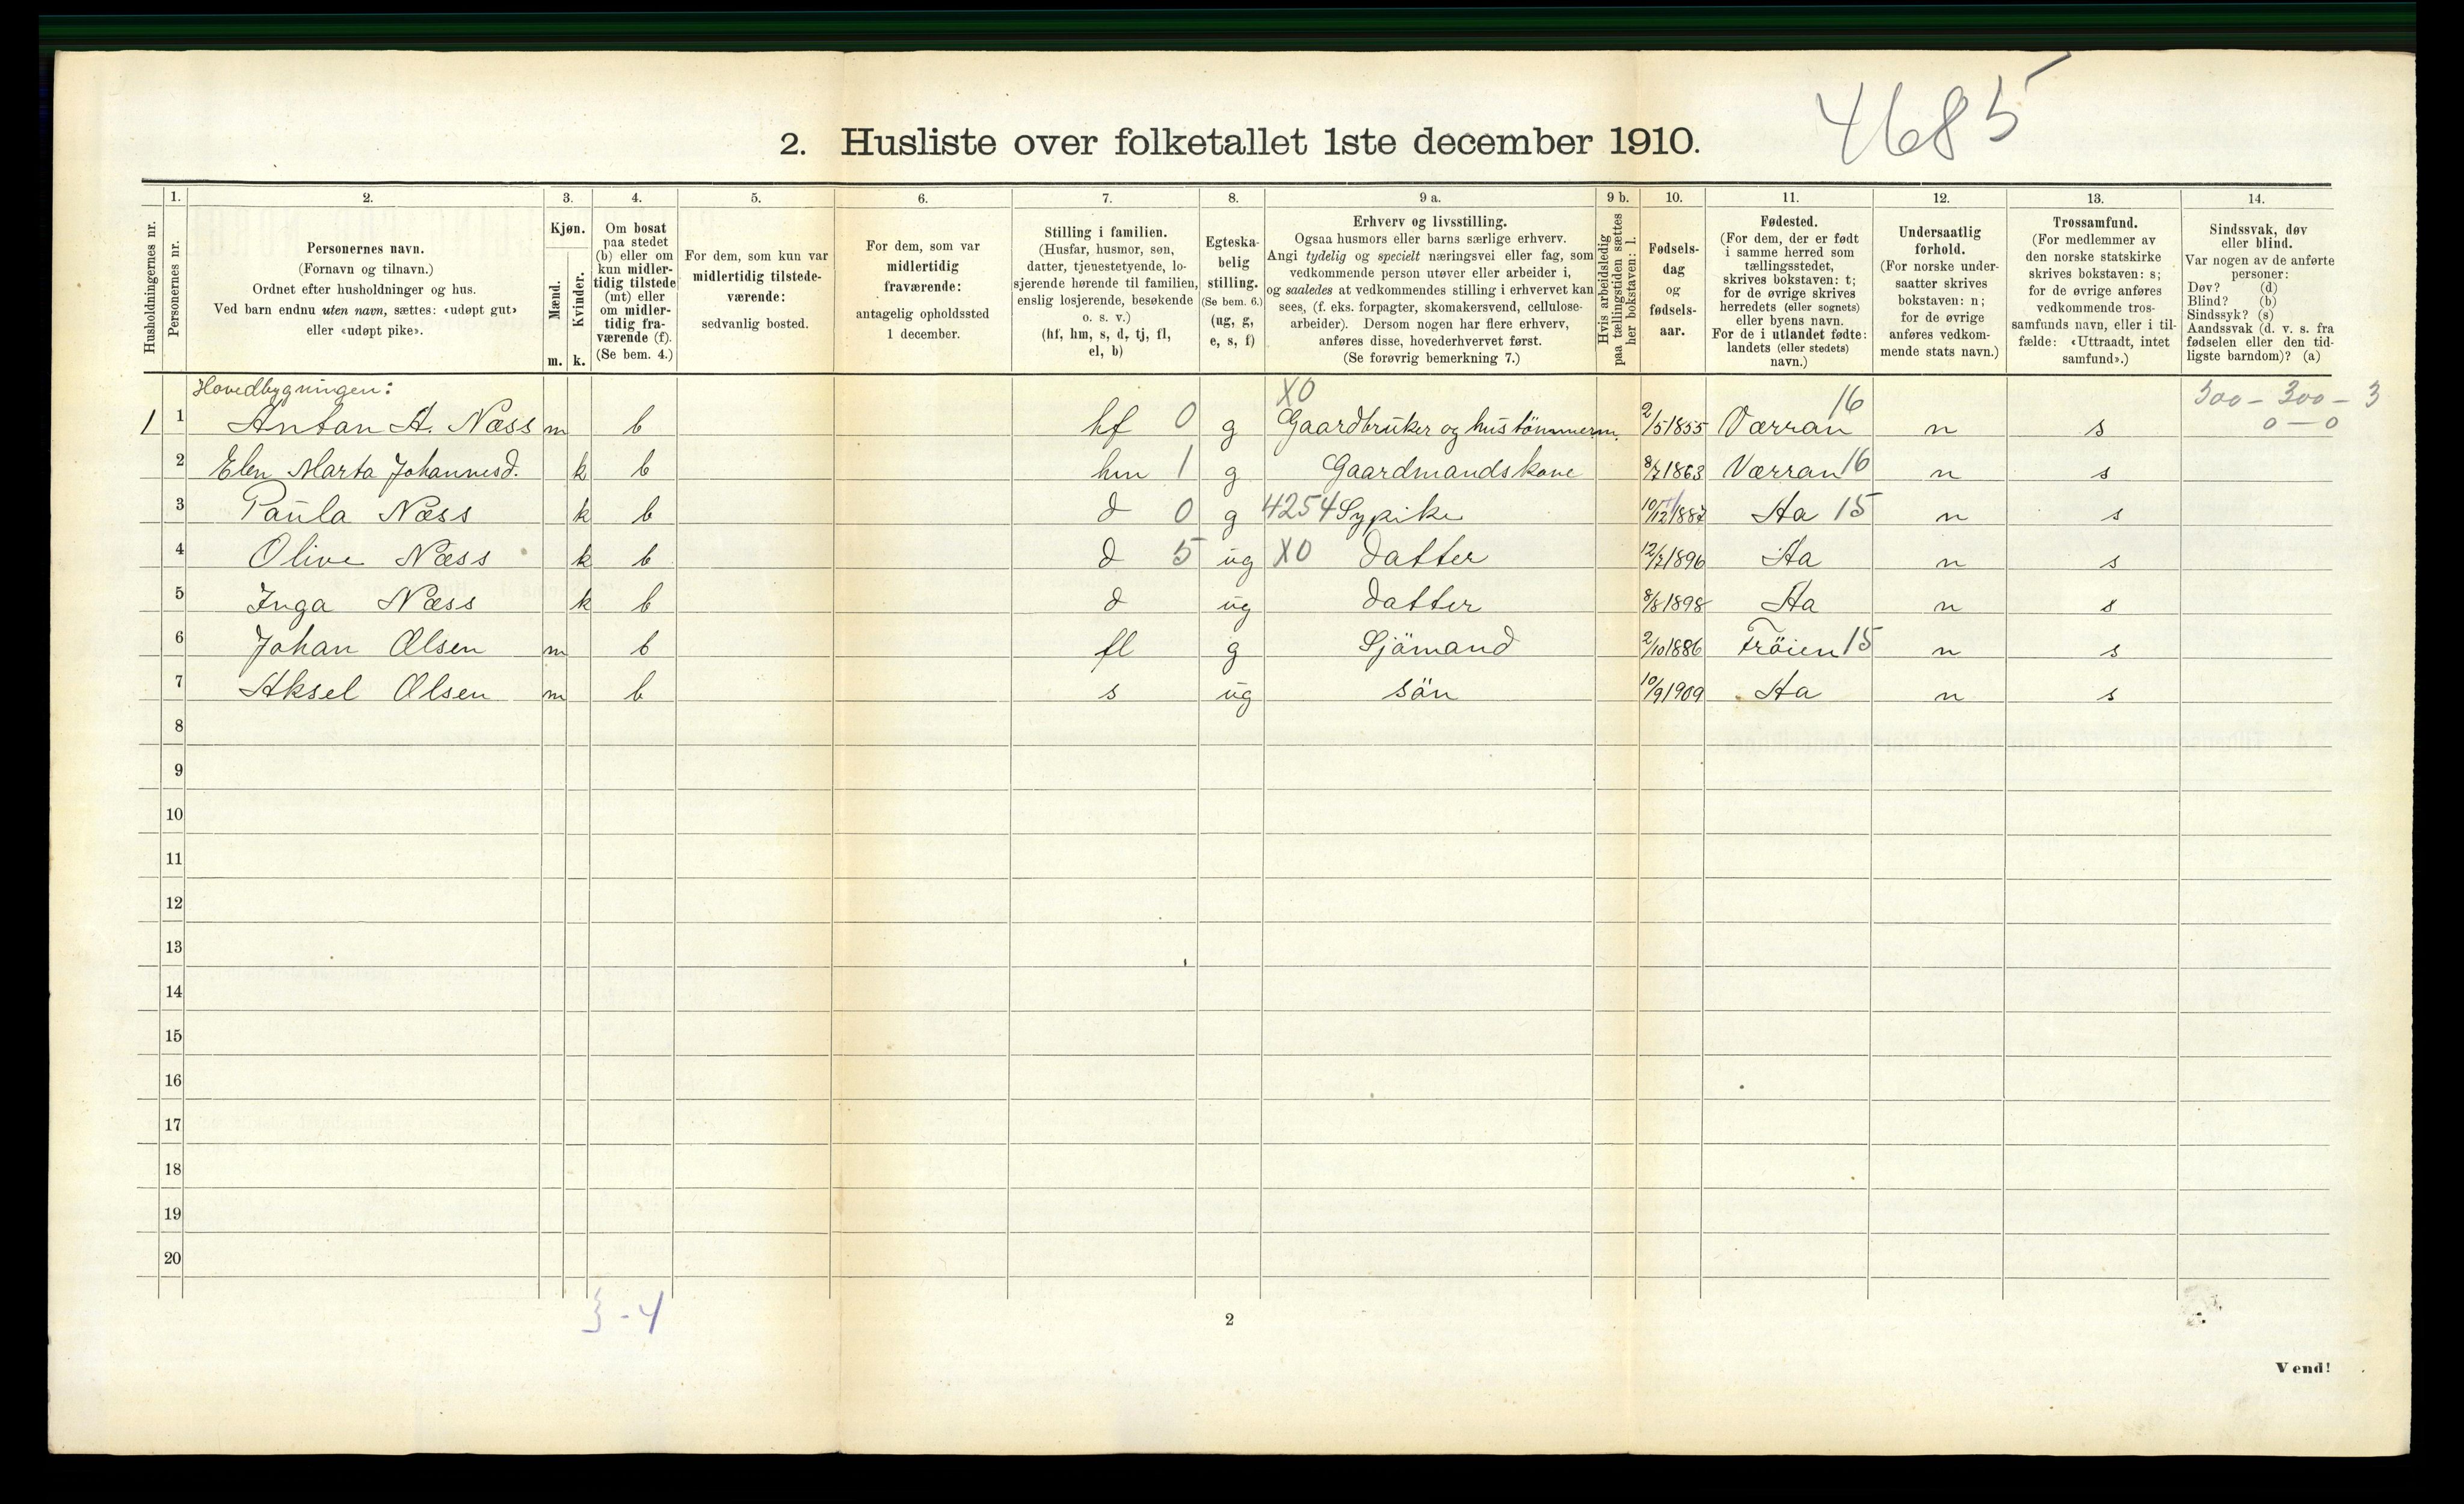 4685
2. Husliste over folketallet 1ste december 1910.
Husholdningernes nr.
1.
Personernes nr.
2.
Personernes navn.
(Fornavn og tilnavn.)
Ordnet efter husholdninger og hus.
Ved barn endnu uten navn, sættes: «udøpt gut»
eller «udøpt pike».
3.
Kjøn.
Mænd.
Kvinder.
m. k.
4.
Om bosat
paa stedet
(b) eller om
kun midler-
tidig tilstede
(mt) eller
om midler-
tidig fra-
værende (f).
(Se bem. 4.)
5.
For dem, som kun var
midlertidig tilstede-
værende:
sedvanlig bosted.
6.
For dem, som var
midlertidig
fraværende:
antagelig opholdssted
1 december.
7.
Stilling i familien.
(Husfar, husmor, søn,
datter, tjenestetyende, lo-
sjerende hørende til familien,
enslig losjerende, besøkende
o. s. v.)
(hf, hm, s, d, tj, fl,
el, b)
8.
Egteska-
belig
stilling.
(Se bem. 6.)
(ug, g,
e, s, f)
9 a.
Erhverv og livsstilling.
Ogsaa husmors eller barns særlige erhverv.
Angi tydelig og specielt næringsvei eller fag, som
vedkommende person utøver eller arbeider i,
og saaledes at vedkommendes stilling i erhvervet kan
sees, (f. eks. forpagter, skomakersvend, cellulose-
arbeider). Dersom nogen har flere erhverv,
anføres disse, hovederhvervet først.
(Se forøvrig bemerkning 7.)
9 b.
Hvis arbeidsledig
paa tællingstiden sættes
her bokstaven: l.
10.
Fødsels-
dag
og
fødsels-
aar.
11.
Fødested.
(For dem, der er født
i samme herred som
tællingsstedet,
skrives bokstaven: t;
for de øvrige skrives
herredets (eller sognets)
eller byens navn.
For de i utlandet fødte:
landets (eller stedets)
navn.)
12.
Undersaatlig
forhold.
(For norske under-
saatter skrives
bokstaven: n;
for de øvrige
anføres vedkom-
mende stats navn.)
13.
Trossamfund.
(For medlemmer av
den norske statskirke
skrives bokstaven: s;
for de øvrige anføres
vedkommende tros-
samfunds navn, eller i til-
fælde: «Uttraadt, intet
samfund».)
14.
Sindssvak, døv
eller blind.
Var nogen av de anførte
personer:
Døv? (d)
Blind? (b)
Sindssyk? (s)
Aandssvak (d. v. s. fra
fødselen eller den tid-
ligste barndom)? (a)
Hovedbygningen: X0 16 300 - 300 - 3
1 1 Antan A. Næss m b hf 0 g Gaardbruker og hustömmerm. 2/5 1855 Værran n s 0 - 0
2 Elen Marta Johannesd. k b hm 1 g Gaardmandskone 8/7 1863 Værran 16 n s
3 Paula Næss k b d 0 g 4254 Sypike 10/12 1887 Aa 15 n s
4 Olive Næss k b d 5 ug X0 datter 12/7 1896 Aa n s
5 Inga Næss k b d ug datter 8/8 1898 Aa n s
6 Johan Olsen m b fl g Sjömand 2/10 1886 Fröien 15 n s
7 Aksel Olsen m b s ug sön 10/9 1909 Aa n s
8
9
10
11
12
13
14
15
16
17
18
19
20
3 - 4
2
Vend!